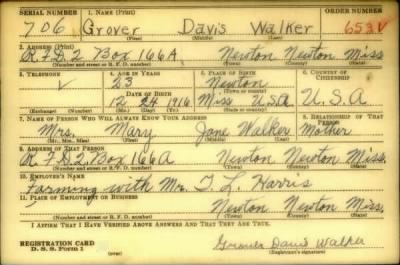 SERIAL NUMBER 1. NAME (Print) ORDER NUMBER
706 Grover Davis Walker 653V
(First) (Middle) (Last)
2. ADDRESS (Print)
R.F.D.2 Box 166A Newton Newton Miss
(Number and street or R. F. D. number) (Town) (County) (State)
3. TELEPHONE 4. AGE IN YEARS 5. PLACE OF BIRTH 6. COUNTRY OF CITIZENSHIP
23 Newton
DATE OF BIRTH (Town or county)
12 24 1916 Miss U.S.A U.S.A
(Exchange) (Number) (Mo.) (Day) (Yr.) (State or country)
7. NAME OF PERSON WHO WILL ALWAYS KNOW YOUR ADDRESS 8. RELATIONSHIP OF THAT PERSON
Mrs. Mary Jane Walker Mother
(Mr., Mrs., Miss) (First) (Middle) (Last)
9. ADDRESS OF THAT PERSON
R.F.D.2. Box 166A Newton Newton Miss.
(Number and street or R. F. D. number) (Town) (County) (State)
10. EMPLOYER'S NAME
Farming with Mr. T. L. Harris
11. PLACE OF EMPLOYMENT OR BUSINESS
Newton Newton Miss,
(Number and street or R. F. D. number) (Town) (County) (State)
I AFFIRM THAT I HAVE VERIFIED ABOVE ANSWERS AND THAT THEY ARE TRUE.
REGISTRATION CARD
D. S. S. Form 1 (over) Grover Davis Walker
(Registrant's signature)